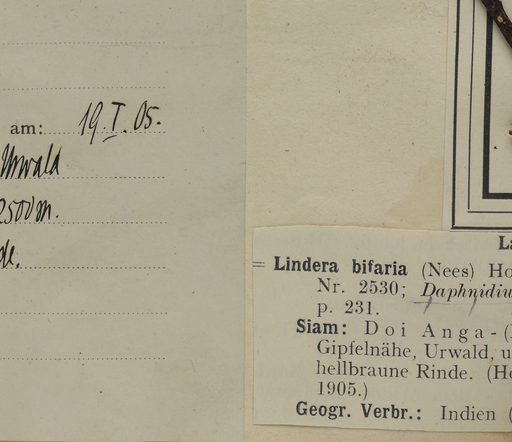 am: 19. I. 05.
Urwald
2500 m.
de.
La
= Lindera bifaria (Nees) Ho
Nr. 2530; Daphnidiu
p. 231.
Siam: Doi Anga-(
Gipfelnähe, Urwald, u
hellbraune Rinde. (Ho
1905.)
Geogr. Verbr.: Indien (